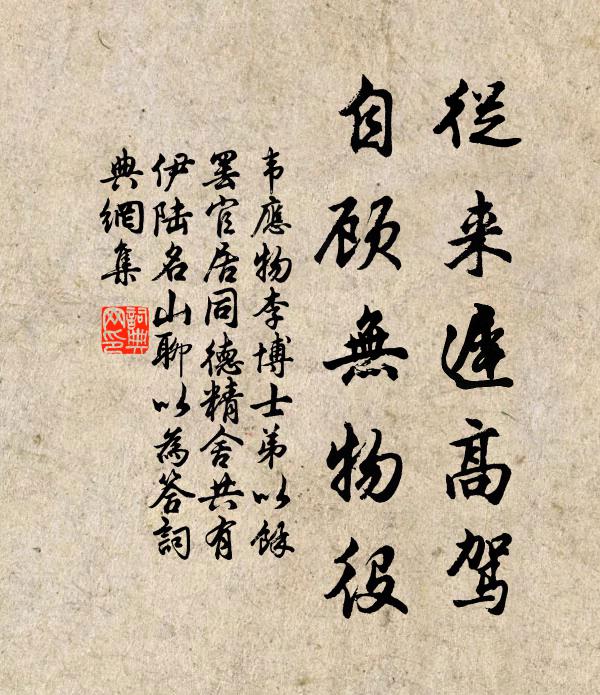 從来遲高駕
自顾無物役
韦應物李博士弟以餘
罢官居同德精舍共有
伊陆名山聊以為答詞
典網集
詞典
网印